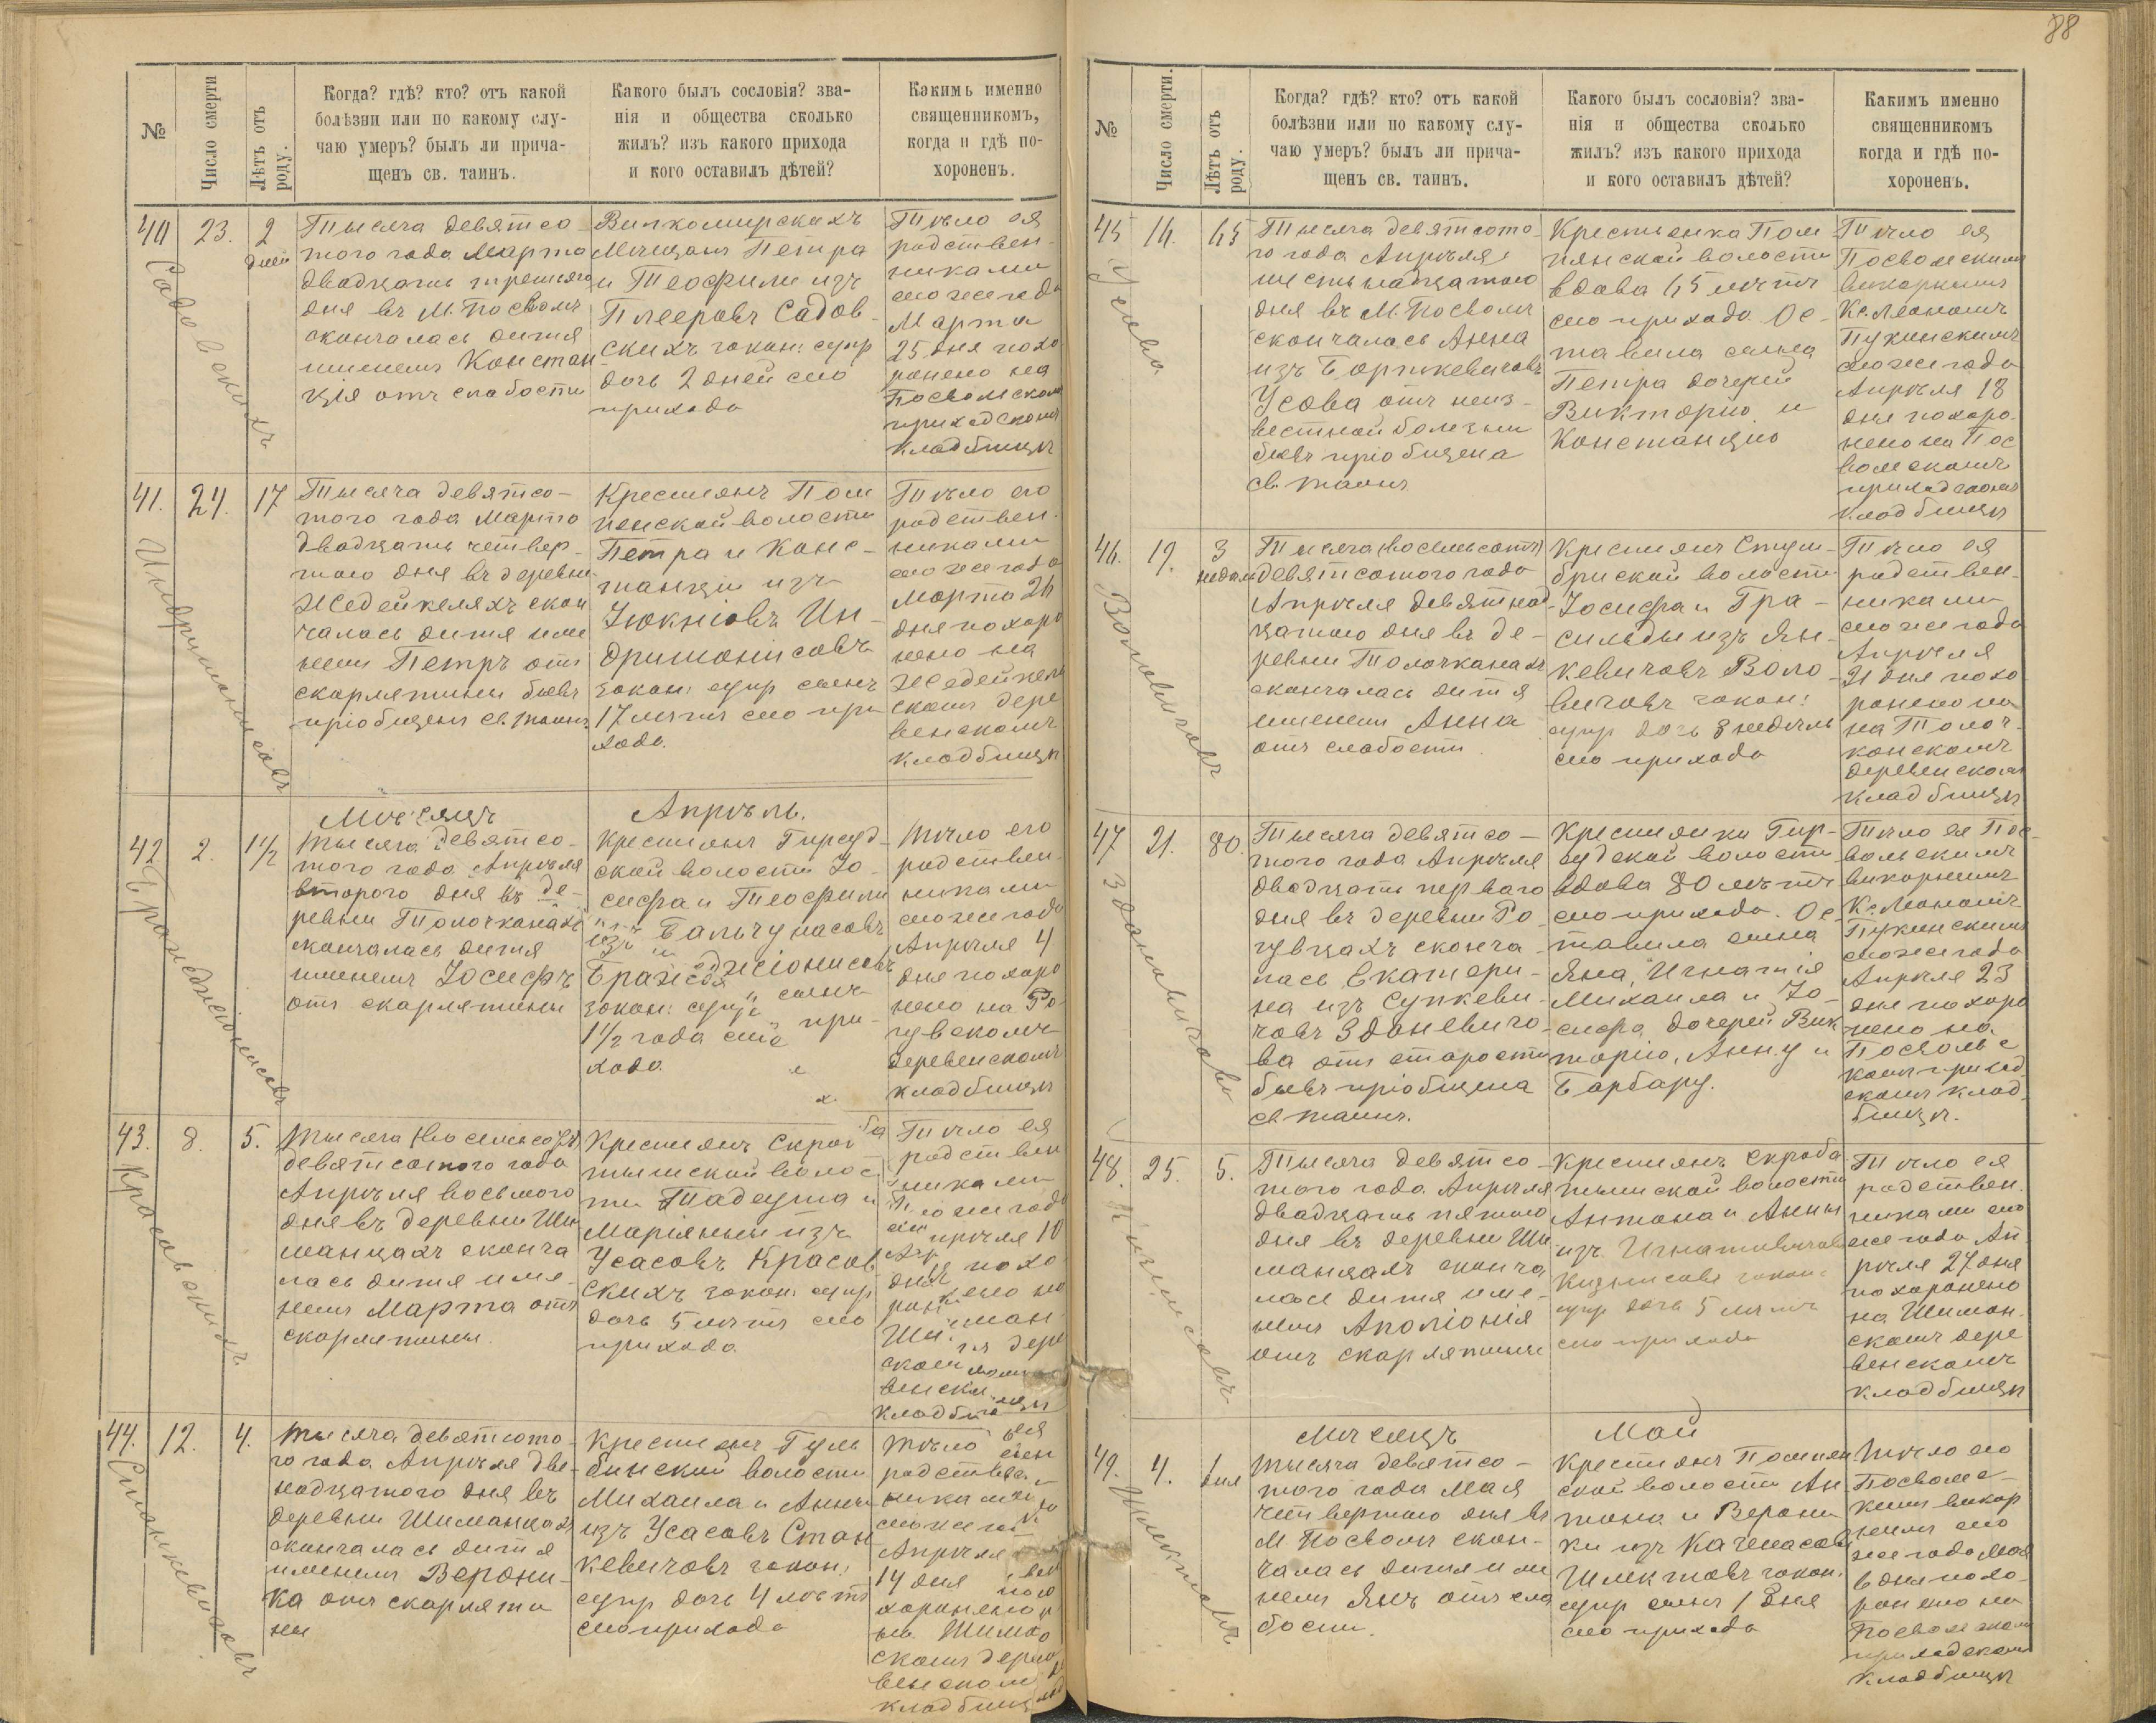 88
№
Число смерти
Лѣтъ отъ роду.
Когда? гдѣ? кто? отъ какой
болѣзни или по какому слу-
чаю умеръ? былъ ли прича-
щенъ св. таинъ.
Какого былъ сословія? зва-
нія и общества сколько
жилъ? изъ какого прихода
и кого оставилъ дѣтей?
Какимъ именно
священникомъ,
когда и гдѣ по-
хороненъ.
40
23.
2
дней
Садовскихъ
Тысяча девятсо-
того года Марта
двадцать третьяго
дня въ М. Посволѣ
скончалась дитя
именемъ Констан
ція отъ слабости
Вилкомирскихъ
Мѣщанъ Петра
и Теофили изъ
Плееровъ Садов-
скихъ закон: супр
дочь 2 дней сего
прихода
Тѣло ея
родствен-
никами
сего же года
Марта
25 дня похо
ронено на
Посвольском
приходском
кладбищѣ
41.
24.
17
Индримонисовъ
Тысяча девятсо-
того года Марта
двадцать четвер-
того дня въ деревни
Жедейкеляхъ скон
чалась дитя име
немъ Петръ отъ
скарлятины бывъ
пріобщенъ св. таинъ
Крестьянъ Пом
пенской волости
Петра и Конс-
танціи изъ
Юкніовъ Ин-
дримонисовъ
закон: супр сынъ
17 лѣтъ сего при
хода.
Тѣло его
родствен-
никами
сего же года
Марта 26
дня похоро
нено на
Жедейкель
скомъ дере
венскомъ
кладбищѣ
Мѣсяцъ Апрѣль.
42
2.
1 1/2
Бражджіонисовъ
Тысяча девятсо-
того года Апрѣля
второго дня въ де-
ревни Толочканахъ
скончалась дитя
именемъ Юсифъ
отъ скарлятины
Крестьянъ Гирсуд-
ской волости Іо-
сифа и Теофили
изъ Бальчунасовъ
Бражджіонисовъ
закон: супр сынъ
1 1/2 года сего при-
хода
Тѣло его
родствен-
никами
сего же года
Апрѣля 4
дня похоро
нено на Ро-
гувскомъ
деревенскомъ
кладбищѣ
43.
8.
5.
Красовскихъ
Тысяча (восемьсотъ)
девятсотого года
Апрѣля восьмого
дня въ деревни Ши
манцахъ сконча
лась дитя име-
немъ Марта отъ
скарлятины.
Крестьянъ Скроба
тышской волос
ти Тадеуша и
Маріянны изъ
Усасовъ Красов-
скихъ закон: супр
дочь 5 лѣтъ сего
прихода
Тѣло ея
родствен
никами
сего же года
Апрѣля 10
дня похо
ронено на
Шиман
скомъ дере
венскомъ
кладбищѣ
44.
12.
4.
Станкевичовъ
Тысяча девятсото-
го года Апрѣля две-
надцатого дня въ
деревни Шиманцахъ
скончалась дитя
именемъ Верони-
ка отъ скарляти
ны
Крестьянъ Гуль
бинской волости
Михаила и Анны
изъ Усасовъ Стан
кевичовъ закон:
супр дочь 4 лѣтъ
сего прихода
Тѣло ея
родствен-
никами
сего же года
Апрѣля
14 дня по
хоронено
на Шиман
скомъ дере
венском
кладбищѣ
№
Число смерти.
Лѣтъ отъ роду.
Когда? гдѣ? кто? отъ какой
болѣзни или по какому слу-
чаю умеръ? былъ ли прича-
щенъ св. таинъ.
Какого былъ сословія? зва-
нія и общества сколько
жилъ? изъ какого прихода
и кого оставилъ дѣтей?
Какимъ именно
священникомъ
когда и гдѣ по-
хороненъ.
45
16.
65
Усова
Тысяча девятсото-
го года Апрѣля
шестьнадцатого
дня въ М. Посволѣ
скончалась Анна
изъ Борткевичовъ
Усова отъ неиз-
вестной болезни
бывъ пріобщена
св. таинъ
Крестьянка Пом-
пянской волости
вдова 65 лѣтъ
сего прихода. Ос-
тавила сына
Петра дочерей
Викторію и
Констанцію
Тѣло ея
Посвольскимъ
викарнымъ
Кс. Леономъ
Пукинскимъ
сего же года
Апрѣля 18
дня похоро-
нено на Пос
вольскомъ
приходскомъ
кладбищѣ
46.
19.
3
недѣли
Воловичовъ
Тысяча (восемьсотъ)
девятсотого года
Апрѣля девятнад-
цатого дня въ де-
ревни Толочканахъ
скончалась дитя
именемъ Анна
отъ слабости
Крестьянъ Стум-
бриской волости
Іосифа и Гра-
сильды изъ Ян-
кевичовъ Воло-
вичовъ закон:
супр дочь 3 недѣль
сего прихода
Тѣло ея
родствен-
никами
сего же года
Апрѣля
21 дня похо
ронено на
на Толоч-
конскомъ
деревенскомъ
кладбищѣ
47
21.
80.
Зданевичова
Тысяча девятсо-
того года Апрѣля
двадцать перваго
дня въ деревни Ро-
гувцахъ сконча-
лась Екатери-
на изъ Супкеви-
човъ Зданевичо-
ва отъ старости
бывъ пріобщена
св. таинъ.
Крестьянки Гир-
судской волости
вдова 80 лѣтъ
сего прихода. Ос-
тавила сына
Яна, Игнатія
Михаила и Іо-
сифа, дочерей Вик
торію, Анну и
Барбару.
Тѣло ея Пос-
вольскимъ
викарнымъ
Кс. Леономъ
Пукинскимъ
сего же года
Апрѣля 23
дня похоро
нено на
Посвольс
комъ приход
скомъ клад
бищѣ.
48.
25.
5.
Кизмисовъ
Тысяча девятсо-
того года Апрѣля
двадцать пятого
дня въ деревни Ши
манцахъ сконча
лась дитя име-
немъ Аполіонія
отъ скарлятины
Крестьянъ Скроба
тышской волости
Антона и Анны
изъ Игнатовичовъ
Кизмисовъ закон:
супр дочь 5 лѣтъ
сего прихода
Тѣло ея
родствен-
никами сего
же года Ап
рѣля 27 дня
похоронено
на Шиман-
скомъ дере
венскомъ
кладбищѣ
Мѣсяцъ Май
49.
4.
1
дня
Шлектовъ
Тысяча девятсо-
того года Мая
четвертого дня въ
М. Посволѣ скон-
чалась дитя име
немъ Янъ отъ сла
бости.
Крестьянъ Помпян
ской волости Ан
тона и Верони
ки изъ Качинасовъ
Шлектовъ закон.
супр сынъ 1 дня
сего прихода
Тѣло его
Посвольс-
кимъ викар
нымъ сего
же года Мая
6 дня похо-
ронено на
Посвольском
приходском
кладбищѣ